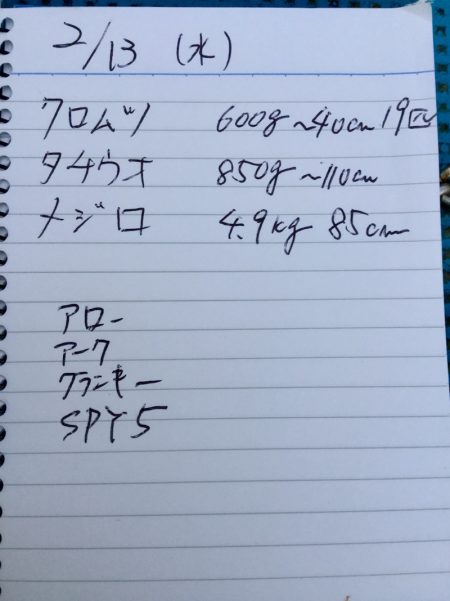 2/13 (水)
クロムツ 600g~40cm 19匹
タチウオ 850g~110cm
メジロ 4.9kg 85cm
アロー
アーク
フランキー
SPY5